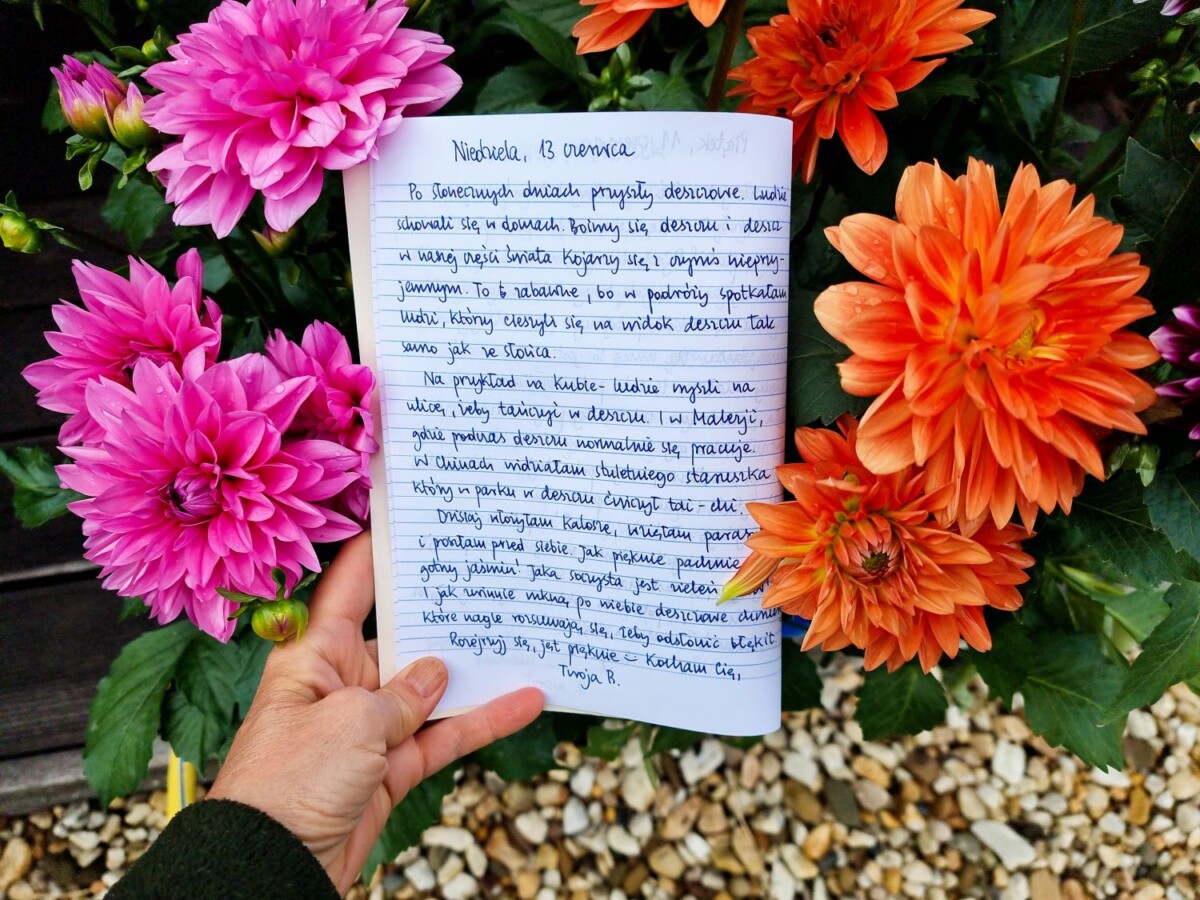 Niedziela, 13 czerwca
Po słonecznych dniach przyszły deszczowe. Ludzie
schowali się w domach. Boimy się deszczu i deszcz
w naszej części świata kojarzy się z czymś nieprzy-
jemnym. To zabawne, bo w podróży spotkałam
ludzi, którzy cieszyli się na widok deszczu tak
samo jak ze słońca.
Na przykład na Kubie - ludzie wyszli na
ulicę, żeby tańczyć w deszczu. I w Malezji,
gdzie podczas deszczu normalnie się pracuje.
W Chinach widziałam stuletniego staruszka
który w parku w deszczu ćwiczył tai-chi.
Dzisiaj włożyłam kalosze, wzięłam paras
i poszłam przed siebie. Jak pięknie pachnie
jaśmin! Jaka soczysta jest zieleń
I jak zwinnie mkną po niebie deszczowe chmury
które nagle rozsuwają się, żeby odsłonić błękit.
Rozejrzyj się, jest pięknie Kocham Cię,
Twoja B.